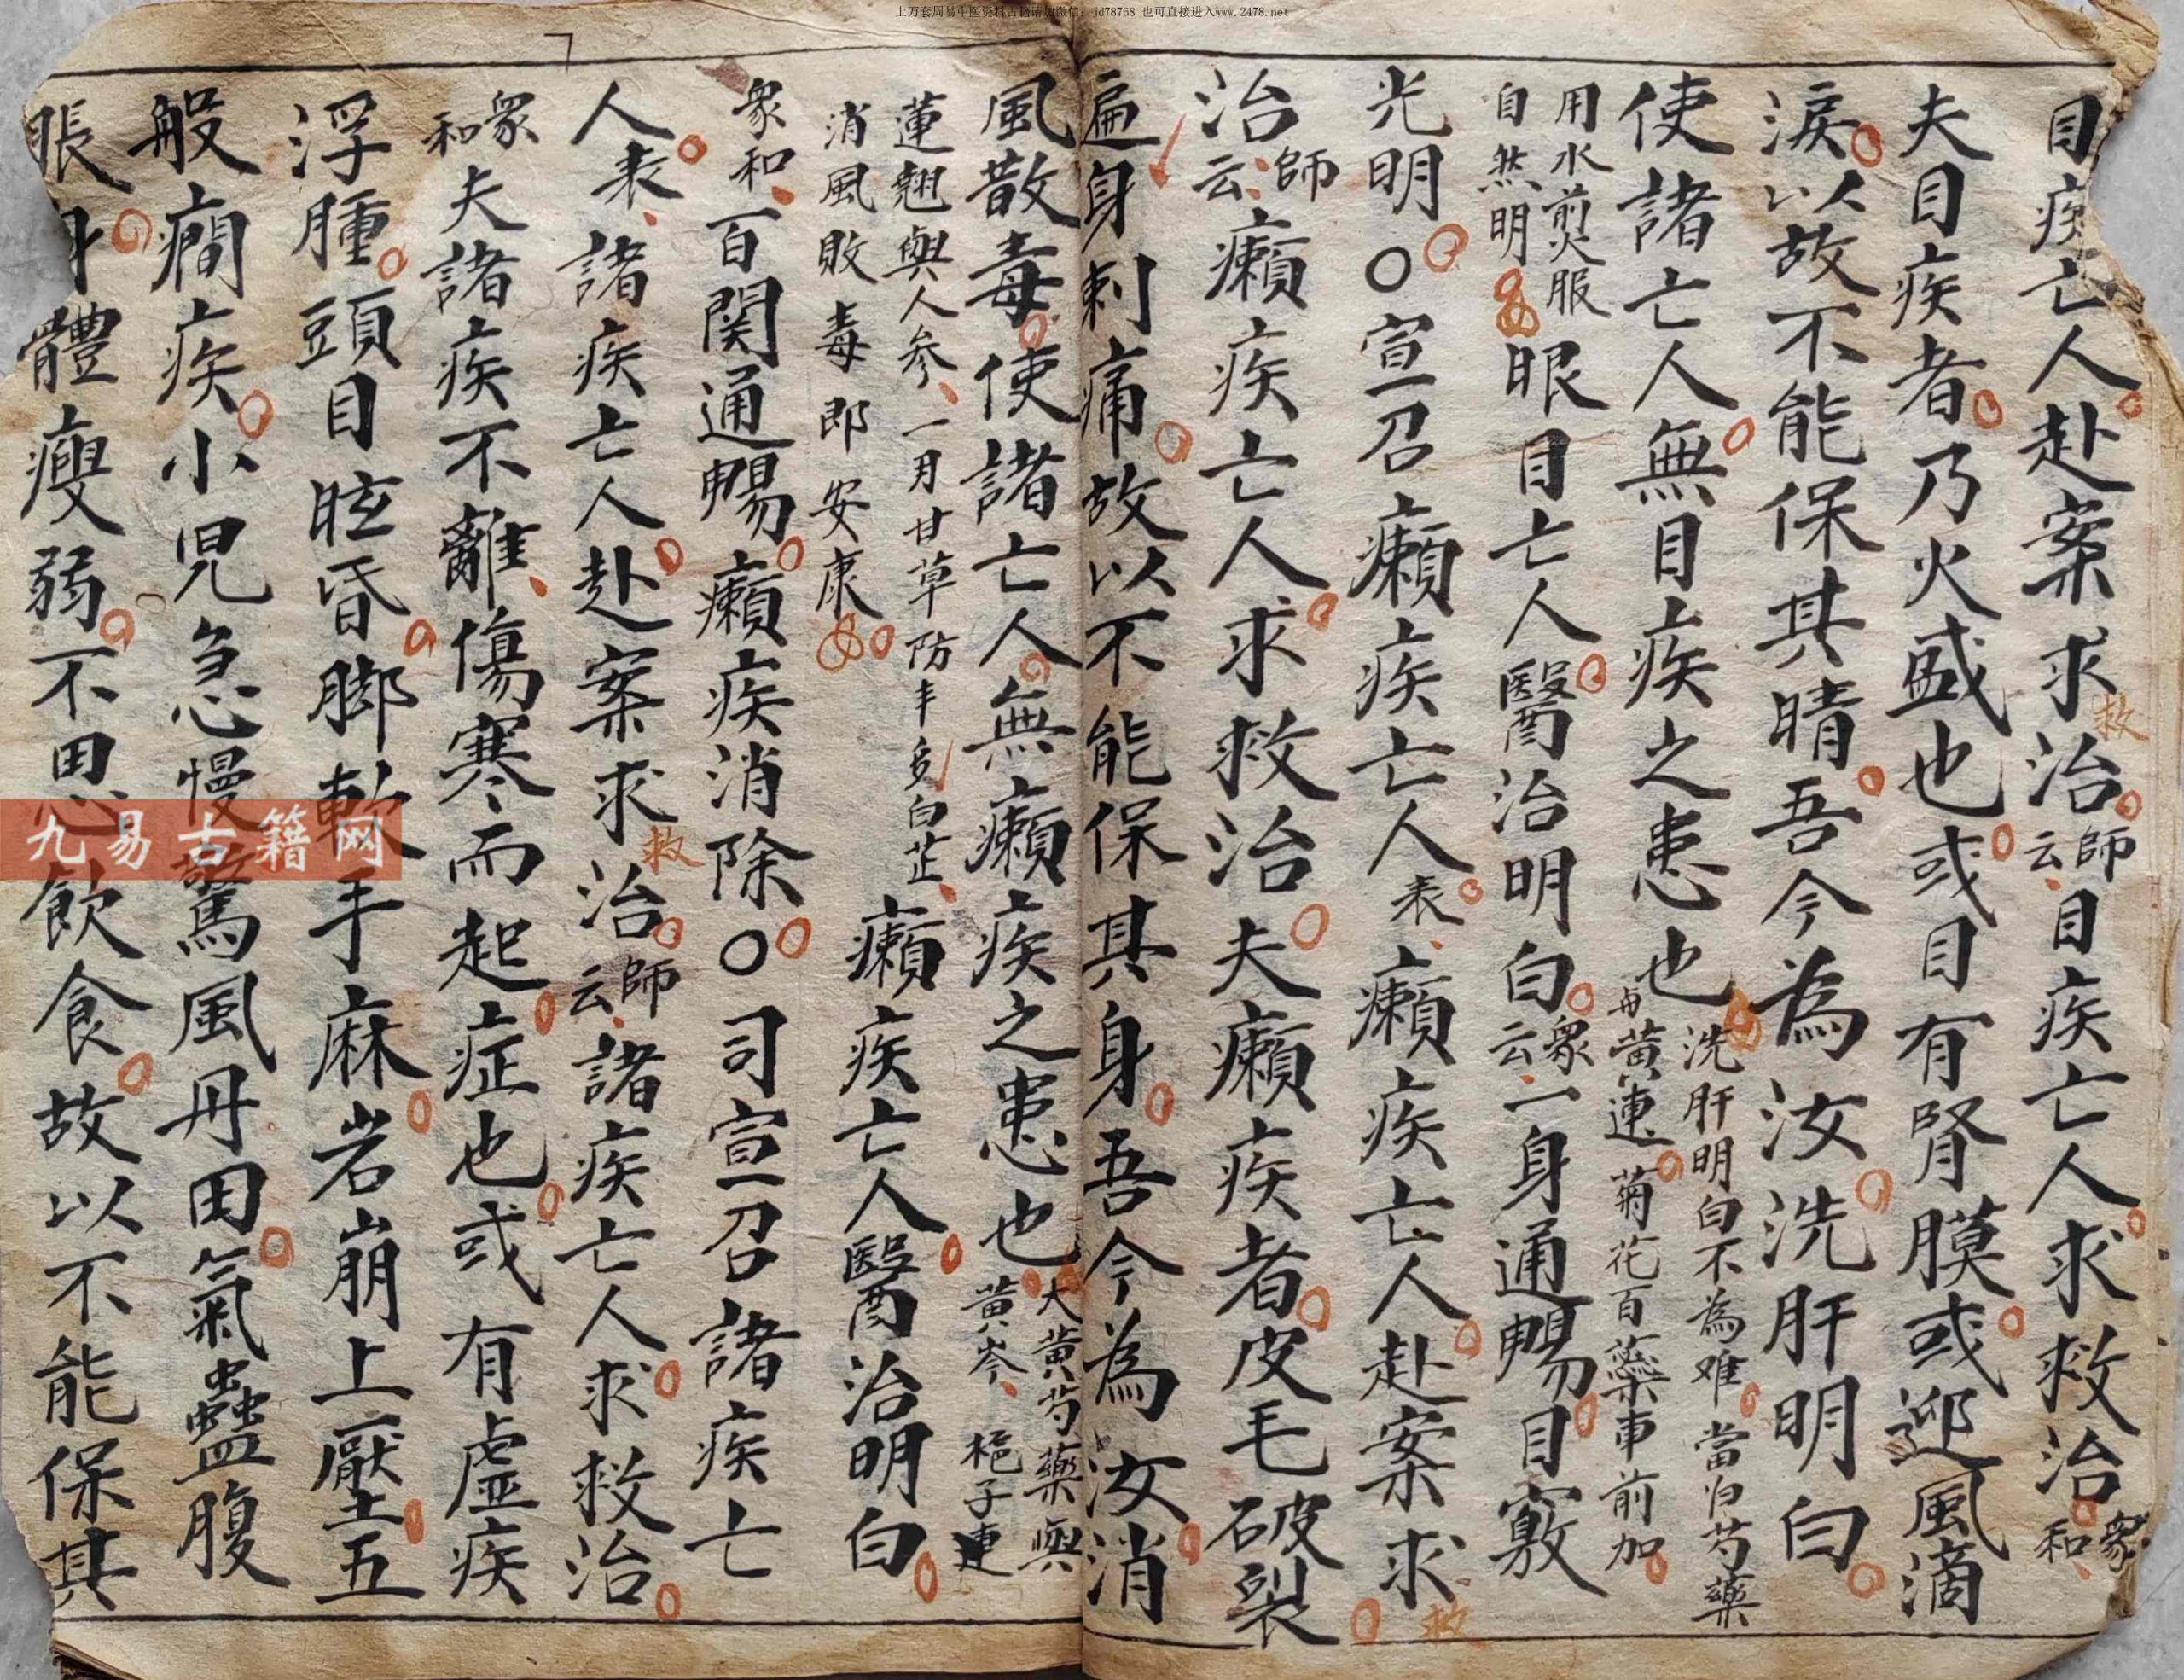 上万套周易中医资料古籍请加微信：jd78768 也可直接进入www.2478.net
目疾亡人赴案求救治師云目疾亡人求救治衆和
夫目疾者乃火盛也或目有腎膜或迎風滴
淚以故不能保其睛吾今為汝洗肝明白
使諸亡人無目疾之患也洗肝明白不為难當归芍藥
每黄連菊花百藥車前加
用水煎服
自然明眼目亡人醫治明白衆云一身通暢目竅
光明〇宣召癩疾亡人表癩疾亡人赴案求救
治師云癩疾亡人求救治夫癩疾者皮毛破裂
遍身刺痛故以不能保其身吾今為汝消
風散毒使諸亡人無癩疾之患也大黄芍藥與
黄芩栀子連
蓮翹與人参一月甘草防丰多白芷
消風敗毒郎安康癩疾亡人醫治明白
衆和百関通暢癩疾消除〇司宣召諸疾亡
人表諸疾亡人赴案求救治師云諸疾亡人求救治
衆和夫諸疾不離傷寒而起症也或有虚疾
浮腫頭目眩昏脚軟手麻岩崩上壓五
般癇疾小児急慢驚風丹田氣蠱腹
脹身體瘦弱不思飲食故以不能保其
九易古籍网